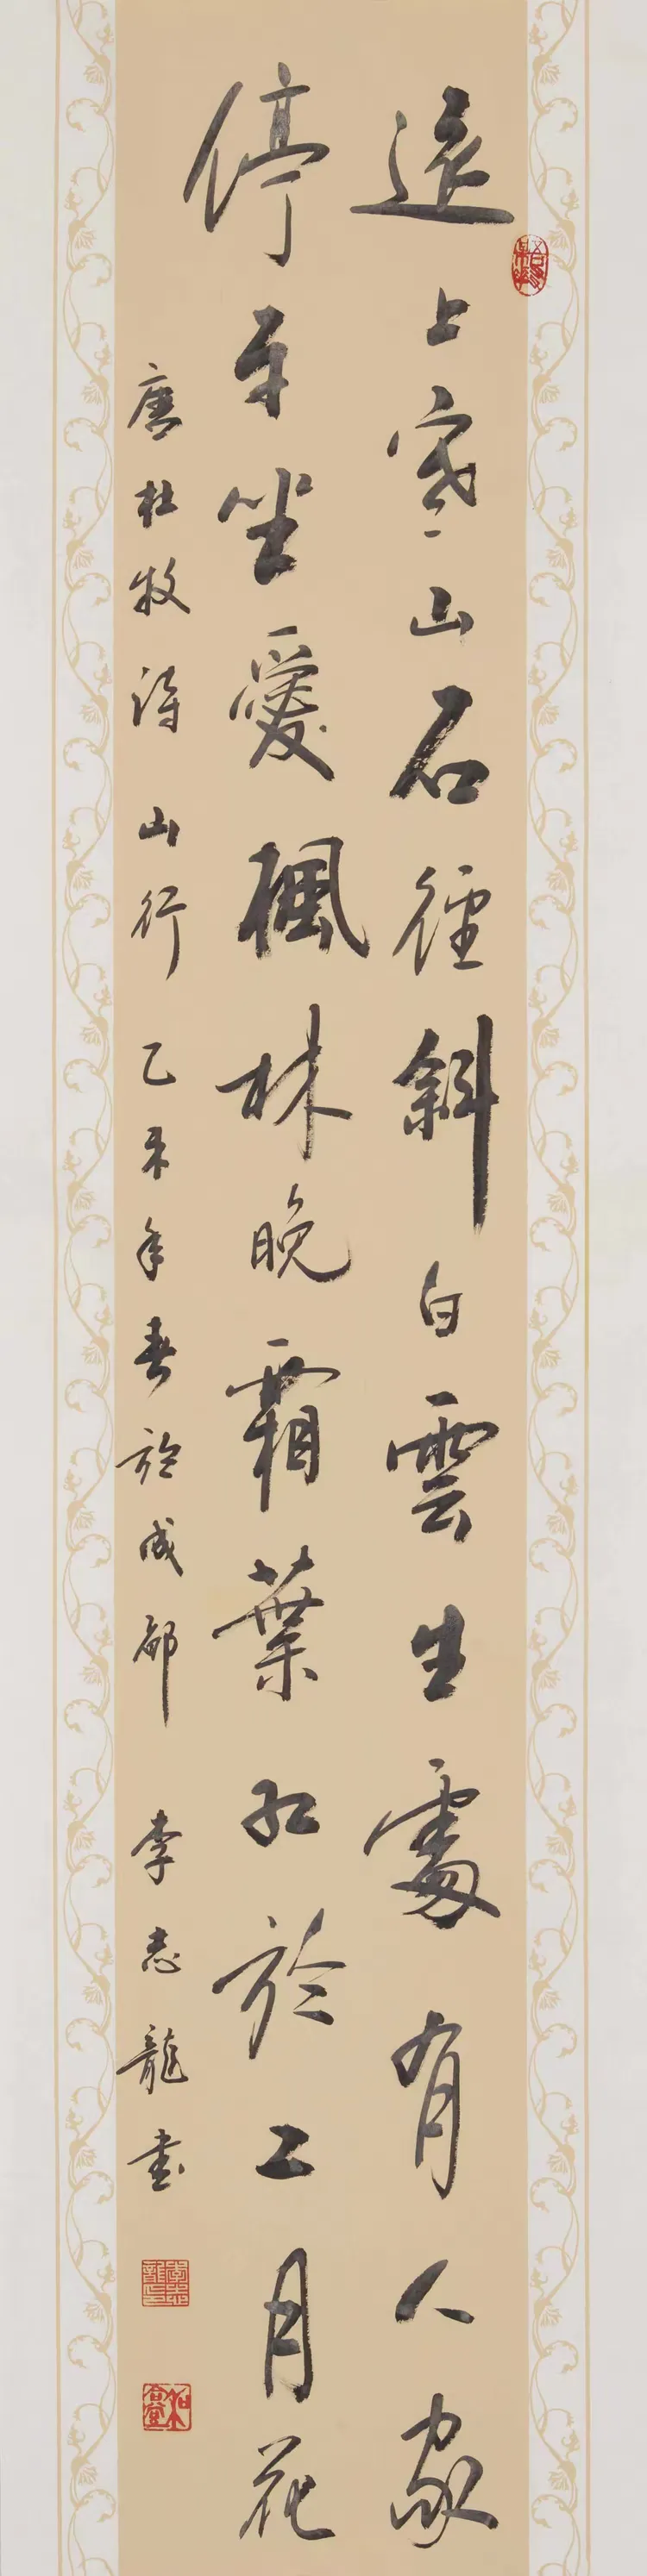 遠上寒山石徑斜白雲生處有人家
停車坐愛楓林晚霜葉紅於二月花
唐杜牧詩 山行 乙未年春於成都 李志龍書